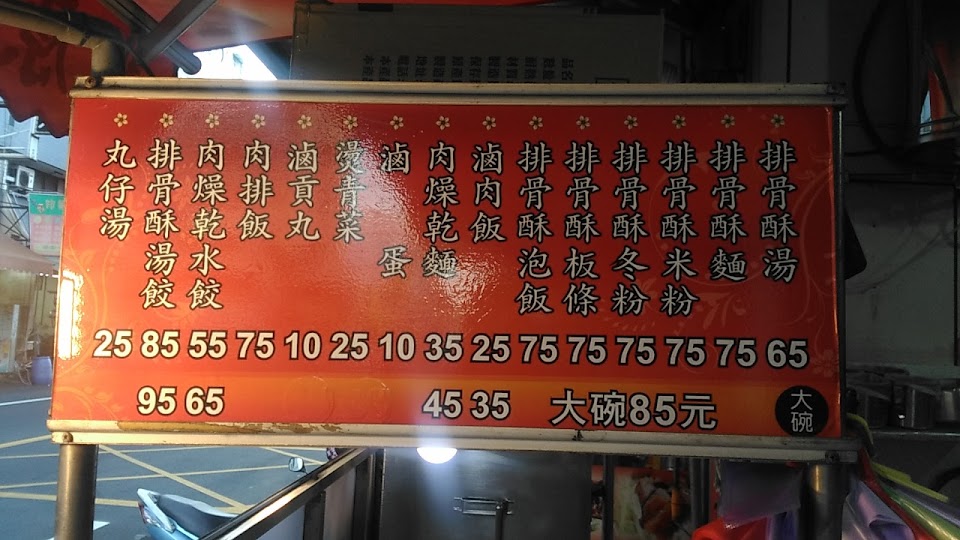 排骨酥湯
排骨酥麵
排骨酥米粉
排骨酥冬粉
排骨酥板條
排骨酥泡飯
滷肉飯
肉燥乾麵
滷蛋
燙青菜
滷貢丸
肉排飯
肉燥乾水餃
排骨酥湯餃
丸仔湯
25 85 55 75 10 25 10 35 25 75 75 75 75 75 65
95 65 45 35 大碗85元 大碗